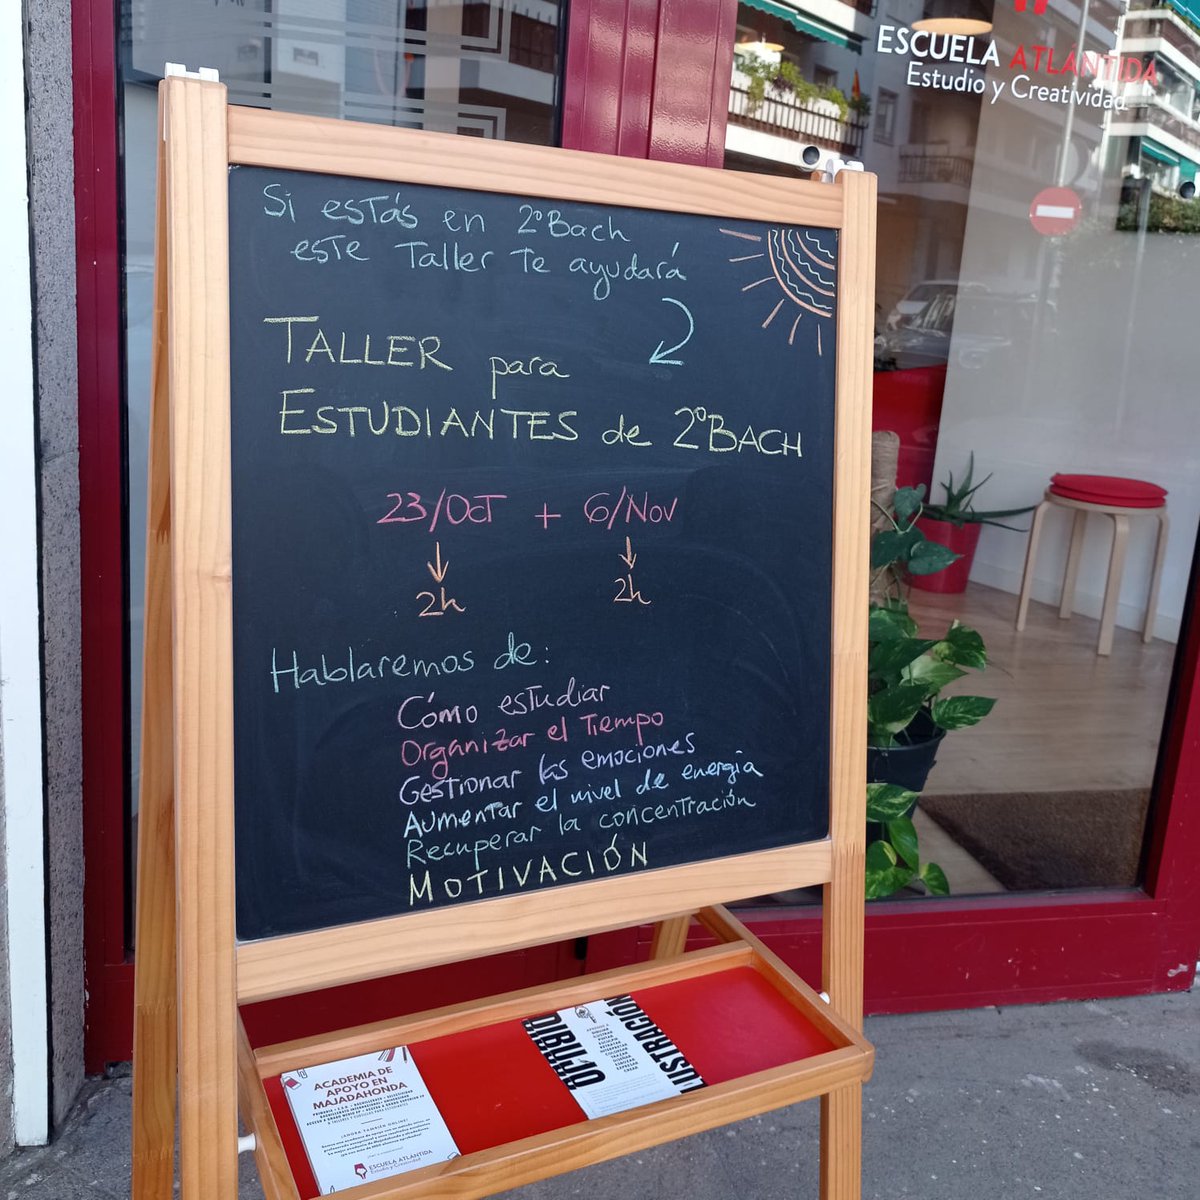 ESCUELA ATLÁNTIDA
Estudio y Creatividad
Si estás en 2ºBach
este Taller te ayudará
TALLER para
ESTUDIANTES de 2ºBACH
23/OCT + 6/NOV
2h 2h
Hablaremos de:
Cómo estudiar
Organizar el tiempo
Gestionar las emociones
Aumentar el nivel de energía
Recuperar la concentración
MOTIVACIÓN
ACADEMIA DE
APOYO EN
MAJADAHONDA
¡AHORA TAMBIÉN ONLINE!
ESCUELA ATLANTIDA
Estudio y Creatividad
DIBUJO
USTRACIÓN